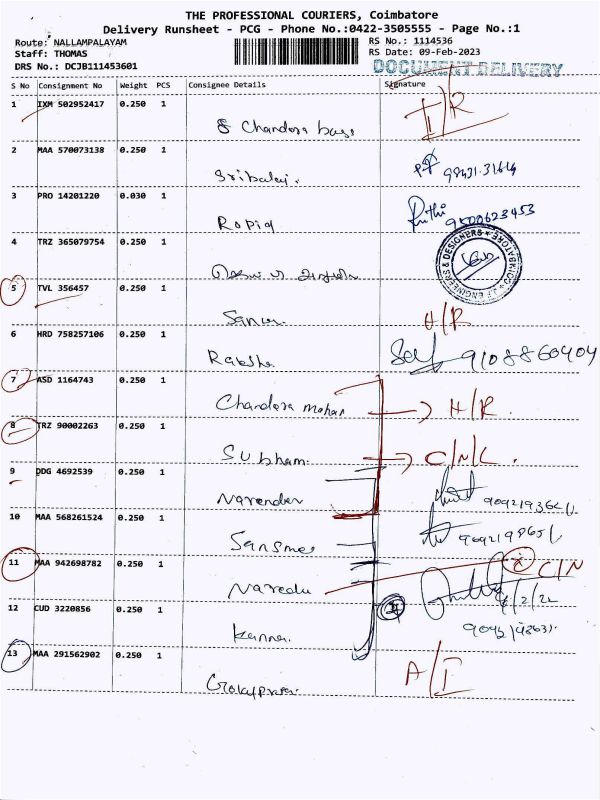 THE PROFESSIONAL COURIERS, Coimbatore
Delivery Runsheet - PCG - Phone No.:0422-3505555 - Page No.:1
Route: NALLAMPALAYAM
Staff: THOMAS
DRS No.: DCJB111453601
RS No.: 1114536
RS Date: 09-Feb-2023
DOCUMENT DELIVERY
S No Consignment No Weight PCS Consignee Details Signature
1 IXM 502952417 0.250 1
I/R
2 MAA 570073138 0.250 1
Sribalaji.
3 PRO 14201220 0.030 1
9500623453
Ropiq
4 TRZ 365079754 0.250 1
J.F ENGINEERS & DESIGNERS * COIMBATORE *
5 TVL 356457 0.250 1
H/R
6 HRD 758257106 0.250 1
9108860404
7 ASD 1164743 0.250 1
Chandora mohan H/R.
8 TRZ 90002263 0.250 1
Subham. C/N/L.
9 DDG 4692539 0.250 1
Narender
10 MAA 568261524 0.250 1
11 MAA 942698782 0.250 1
C/N
12 CUD 3220856 0.250 1
Kanna.
13 MAA 291562902 0.250 1
A/I